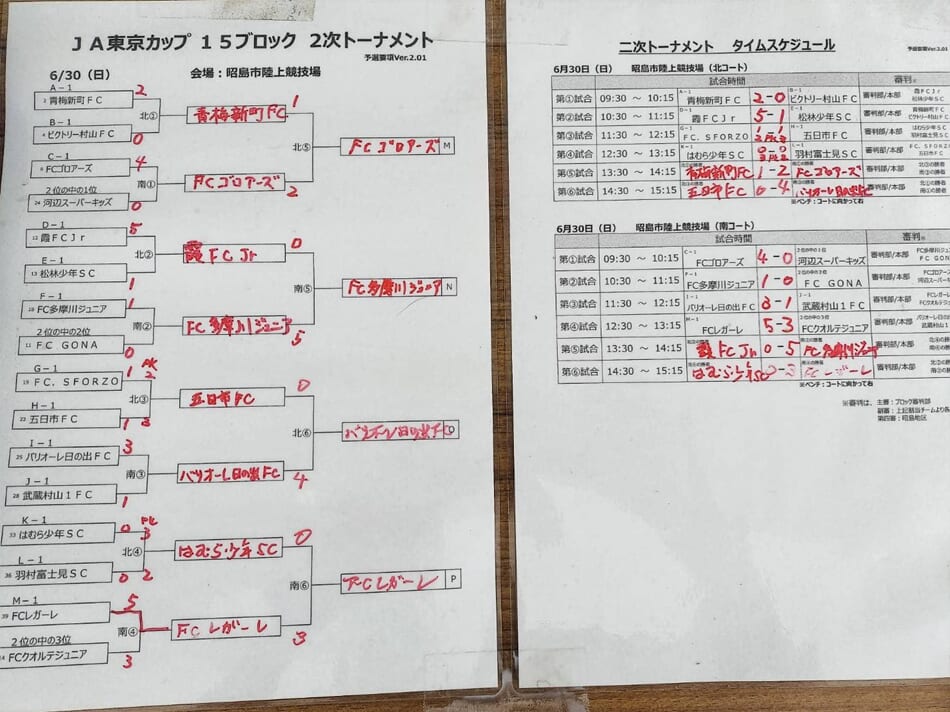 JA東京カップ 15ブロック 2次トーナメント
予選要項Ver.2.01
6/30（日） 会場：昭島市陸上競技場
A-1
青梅新町FC 2
北①
青梅新町FC 1
B-1
ビクトリー村山FC 0
北⑤
FCゴロアーズ M
C-1
6 FCゴロアーズ 4
南①
FCゴロアーズ 2
2位の中の1位
24 河辺スーパーキッズ 0
D-1
12 霞FCJr 5
北②
霞FCJr 0
E-1
13 松林少年SC 1
南⑤
FC多摩川ジュニア N
F-1
18 FC多摩川ジュニア 1
南②
FC多摩川ジュニア 5
2位の中の2位
11 FC GONA 0
G-1
19 FC. SFORZO 1 PK 2
北③
五日市FC 0
H-1
22 五日市FC 1 3
北⑥
バリオーレ日の出FC O
I-1
25 バリオーレ日の出FC 3
南③
バリオーレ日の出FC 4
J-1
28 武蔵村山1FC 1
K-1
33 はむら少年SC 0 PK 3
北④
はむら少年SC 0
L-1
36 羽村富士見SC 0 2
南⑥
FCレガーレ P
M-1
39 FCレガーレ 5
南④
FCレガーレ 3
2位の中の3位
14 FCクオルテジュニア 3
二次トーナメント タイムスケジュール
予選要項Ver.2.01
6月30日（日） 昭島市陸上競技場（北コート）
試合時間 審判※
第①試合 09:30 ～ 10:15 A-1 青梅新町FC 2-0 B-1 ビクトリー村山FC 審判部/本部 霞FCJr 松林少年SC
第②試合 10:30 ～ 11:15 D-1 霞FCJr 5-1 E-1 松林少年SC 審判部/本部 青梅新町FC ビクトリー村山FC
第③試合 11:30 ～ 12:15 G-1 FC. SFORZO 1-1 2PK3 H-1 五日市FC 審判部/本部 はむら少年SC 羽村富士見SC
第④試合 12:30 ～ 13:15 K-1 はむら少年SC 0-0 3PK2 L-1 羽村富士見SC 審判部/本部 FC. SFORZO 五日市FC
第⑤試合 13:30 ～ 14:15 北①の勝者 青梅新町FC 1-2 南①の勝者 FCゴロアーズ 審判部/本部 北③の勝者 南③の勝者
第⑥試合 14:30 ～ 15:15 北③の勝者 五日市FC 0-4 南③の勝者 バリオーレ日の出FC 審判部/本部 北①の勝者 南①の勝者
※ベンチ：コートに向かって右
6月30日（日） 昭島市陸上競技場（南コート）
試合時間 審判※
第①試合 09:30 ～ 10:15 C-1 FCゴロアーズ 4-0 2位の中の1位 河辺スーパーキッズ 審判部/本部 FC多摩川ジュニア FC GONA
第②試合 10:30 ～ 11:15 F-1 FC多摩川ジュニア 1-0 2位の中の2位 FC GONA 審判部/本部 FCゴロアーズ 河辺スーパーキッズ
第③試合 11:30 ～ 12:15 I-1 バリオーレ日の出FC 3-1 J-1 武蔵村山1FC 審判部/本部 FCレガーレ FCクオルテジュニア
第④試合 12:30 ～ 13:15 M-1 FCレガーレ 5-3 2位の中の3位 FCクオルテジュニア 審判部/本部 バリオーレ日の出FC 武蔵村山1FC
第⑤試合 13:30 ～ 14:15 北②の勝者 霞FCJr 0-5 南②の勝者 FC多摩川ジュニア 審判部/本部 北④の勝者 南④の勝者
第⑥試合 14:30 ～ 15:15 北④の勝者 はむら少年SC 0-3 南④の勝者 FCレガーレ 審判部/本部 北②の勝者 南②の勝者
※ベンチ：コートに向かって右
※審判は、主審：ブロック審判部
副審：上記割当チームより各
第四審：昭島地区